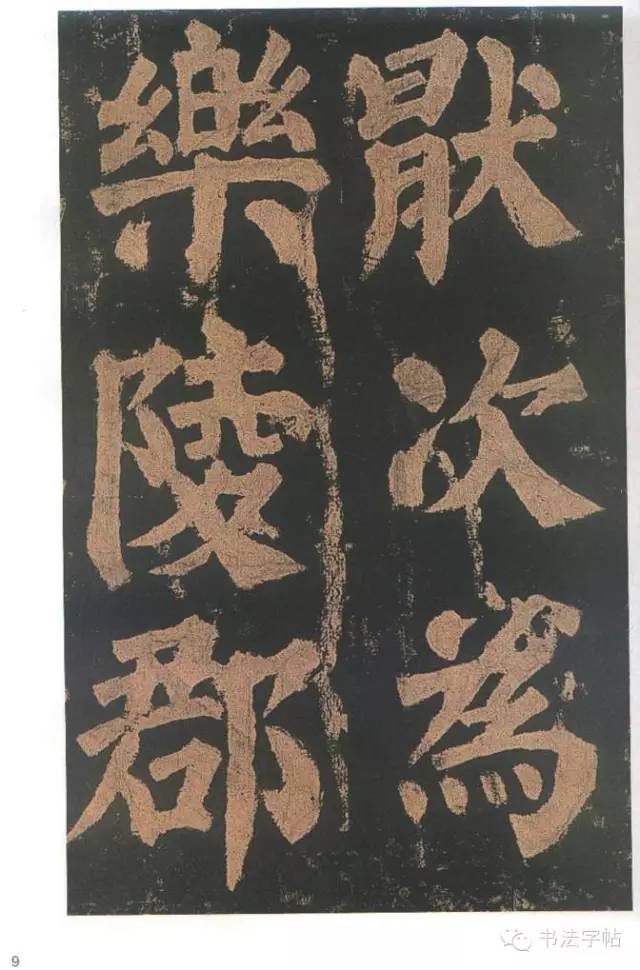 猒次為
樂陵郡
9
书法字帖